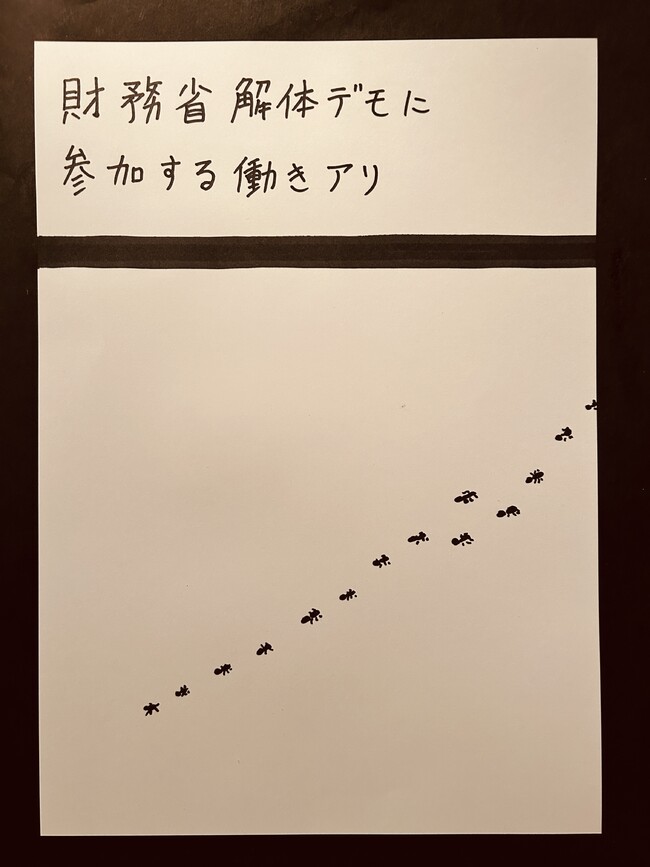 財務省解体デモに
参加する働きアリ